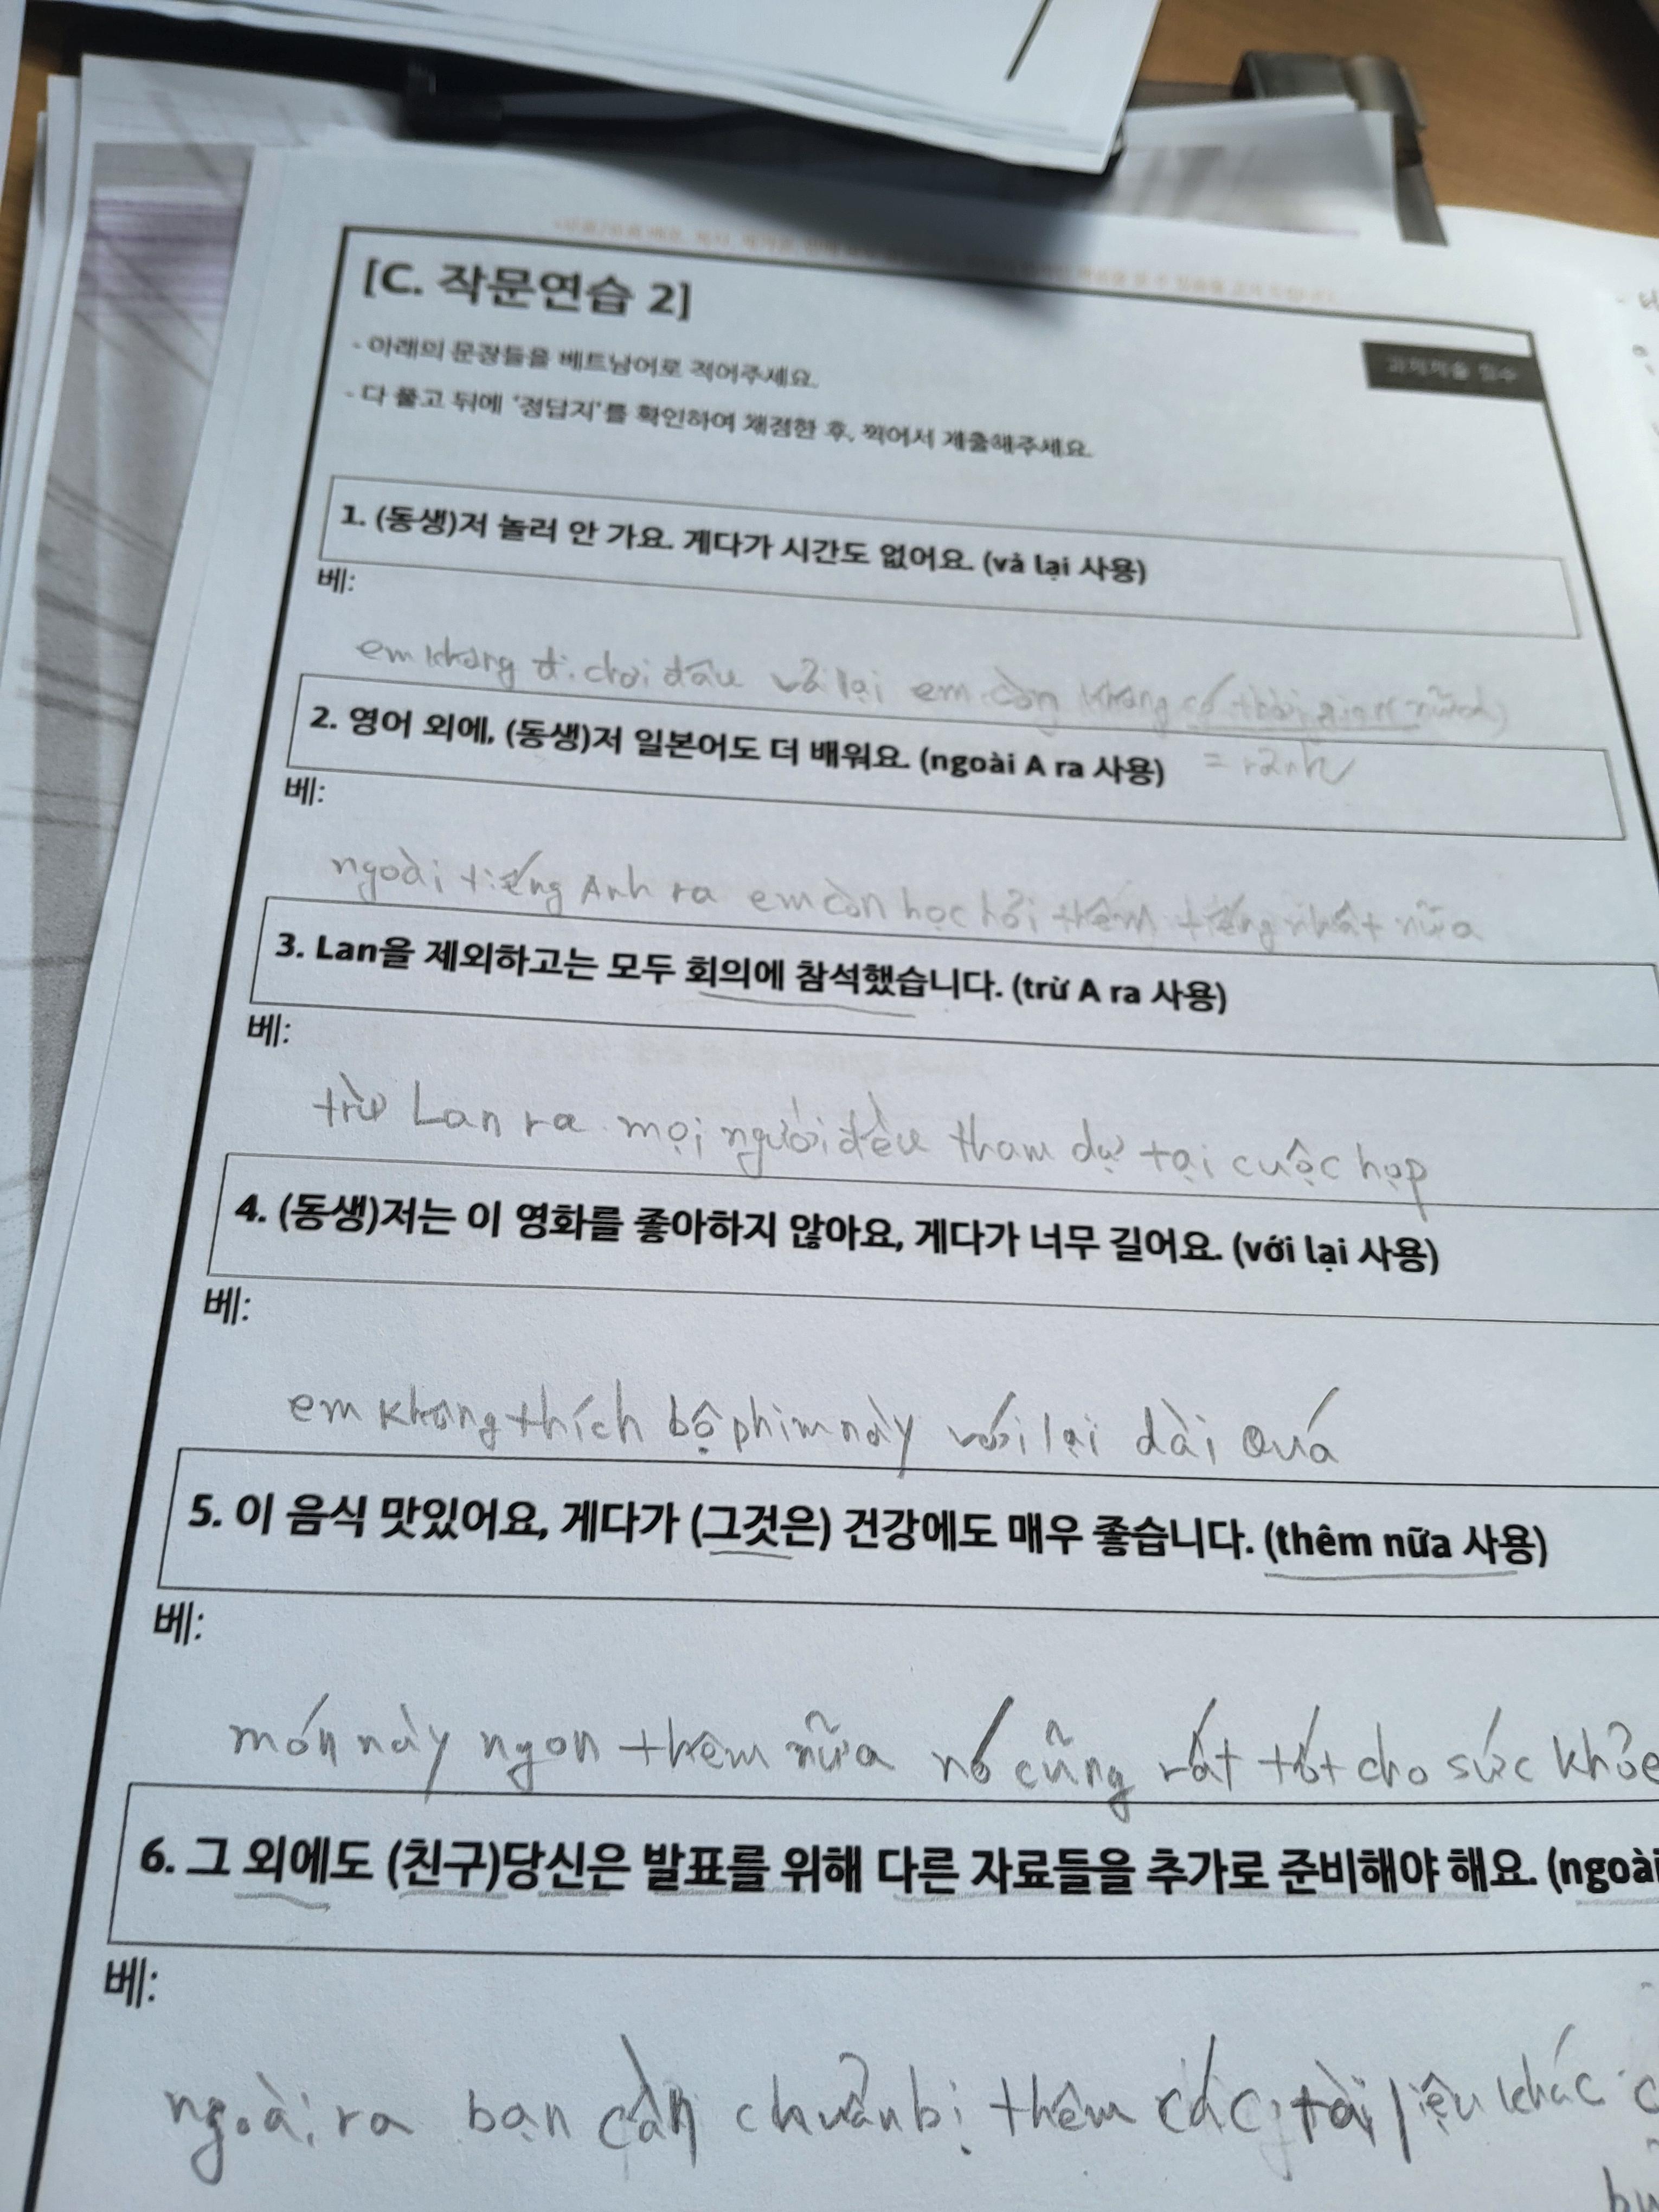 [C. 작문연습 2]
과제제출 필수
- 아래의 문장들을 베트남어로 적어주세요.
- 다 풀고 뒤에 '정답지'를 확인하여 채점한 후, 찍어서 제출해주세요.
1. (동생)저 놀러 안 가요. 게다가 시간도 없어요. (vả lại 사용)
베:
em không đi chơi đâu vả lại em còn không có thời gian nữa
= rảnh
2. 영어 외에, (동생)저 일본어도 더 배워요. (ngoài A ra 사용)
베:
ngoài tiếng Anh ra em còn học hỏi thêm tiếng nhật nữa
3. Lan을 제외하고는 모두 회의에 참석했습니다. (trừ A ra 사용)
베:
trừ Lan ra mọi người đều tham dự tại cuộc họp
4. (동생)저는 이 영화를 좋아하지 않아요, 게다가 너무 길어요. (với lại 사용)
베:
em không thích bộ phim này với lại dài quá
5. 이 음식 맛있어요, 게다가 (그것은) 건강에도 매우 좋습니다. (thêm nữa 사용)
베:
món này ngon thêm nữa nó cũng rất tốt cho sức khỏe
6. 그 외에도 (친구)당신은 발표를 위해 다른 자료들을 추가로 준비해야 해요. (ngoài
베:
ngoài ra bạn cần chuẩn bị thêm các tài liệu khác